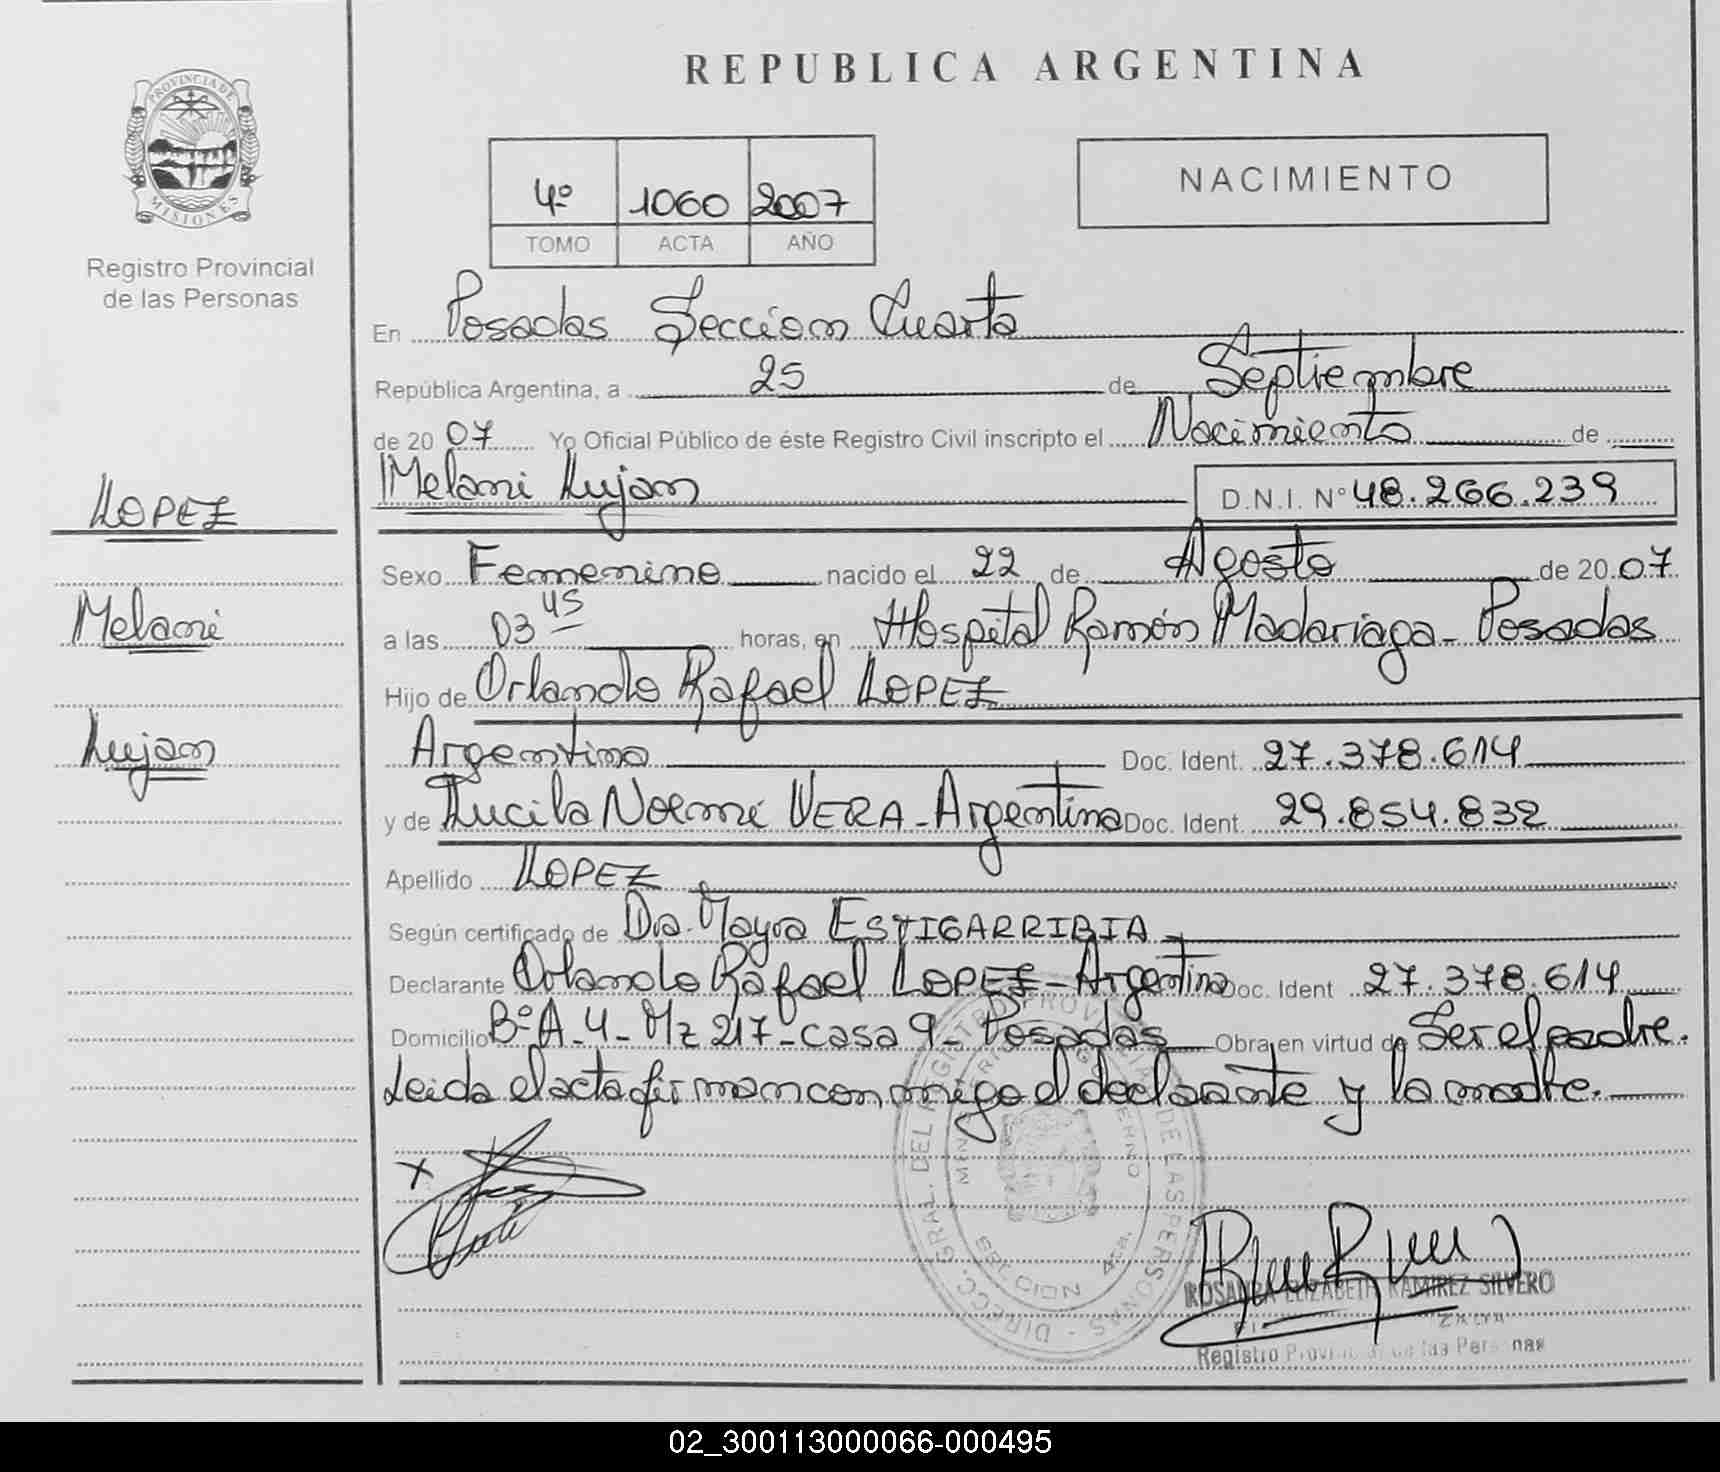 REPUBLICA ARGENTINA
PROVINCIA DE
MISIONES
Registro Provincial
de las Personas
4º 1060 2007
TOMO ACTA AÑO
NACIMIENTO
En Posadas Seccion Cuarta
República Argentina, a 25 de Septiembre
de 20 07 Yo Oficial Público de éste Registro Civil inscripto el Nacimiento de
Melani Lujan D.N.I. Nº 48.266.239
LOPEZ
Melani
Lujan
Sexo Femenino nacido el 22 de Agosto de 20 07
a las 03 45 horas, en Hospital Ramón Madariaga - Posadas
Hijo de Orlando Rafael LOPEZ
Argentino Doc. Ident. 27.378.614
y de Lucila Noemi VERA - Argentina Doc. Ident. 29.854.832
Apellido LOPEZ
Según certificado de Dra. Mayra ESTIGARRIBIA
Declarante Orlando Rafael LOPEZ - Argentino Doc. Ident 27.378.614
Domicilio Bº A-4 - Mz 217 - casa 9 - Posadas Obra en virtud de Ser el padre.
Leida el acta firman conmigo el declarante y la madre.
X
DIRECC. GRAL. DEL REGISTRO PROVINCIAL DE LAS PERSONAS
ROSALBA ELIZABETH RAMIREZ SILVERO
Registro Provincial de las Personas
02_300113000066-000495